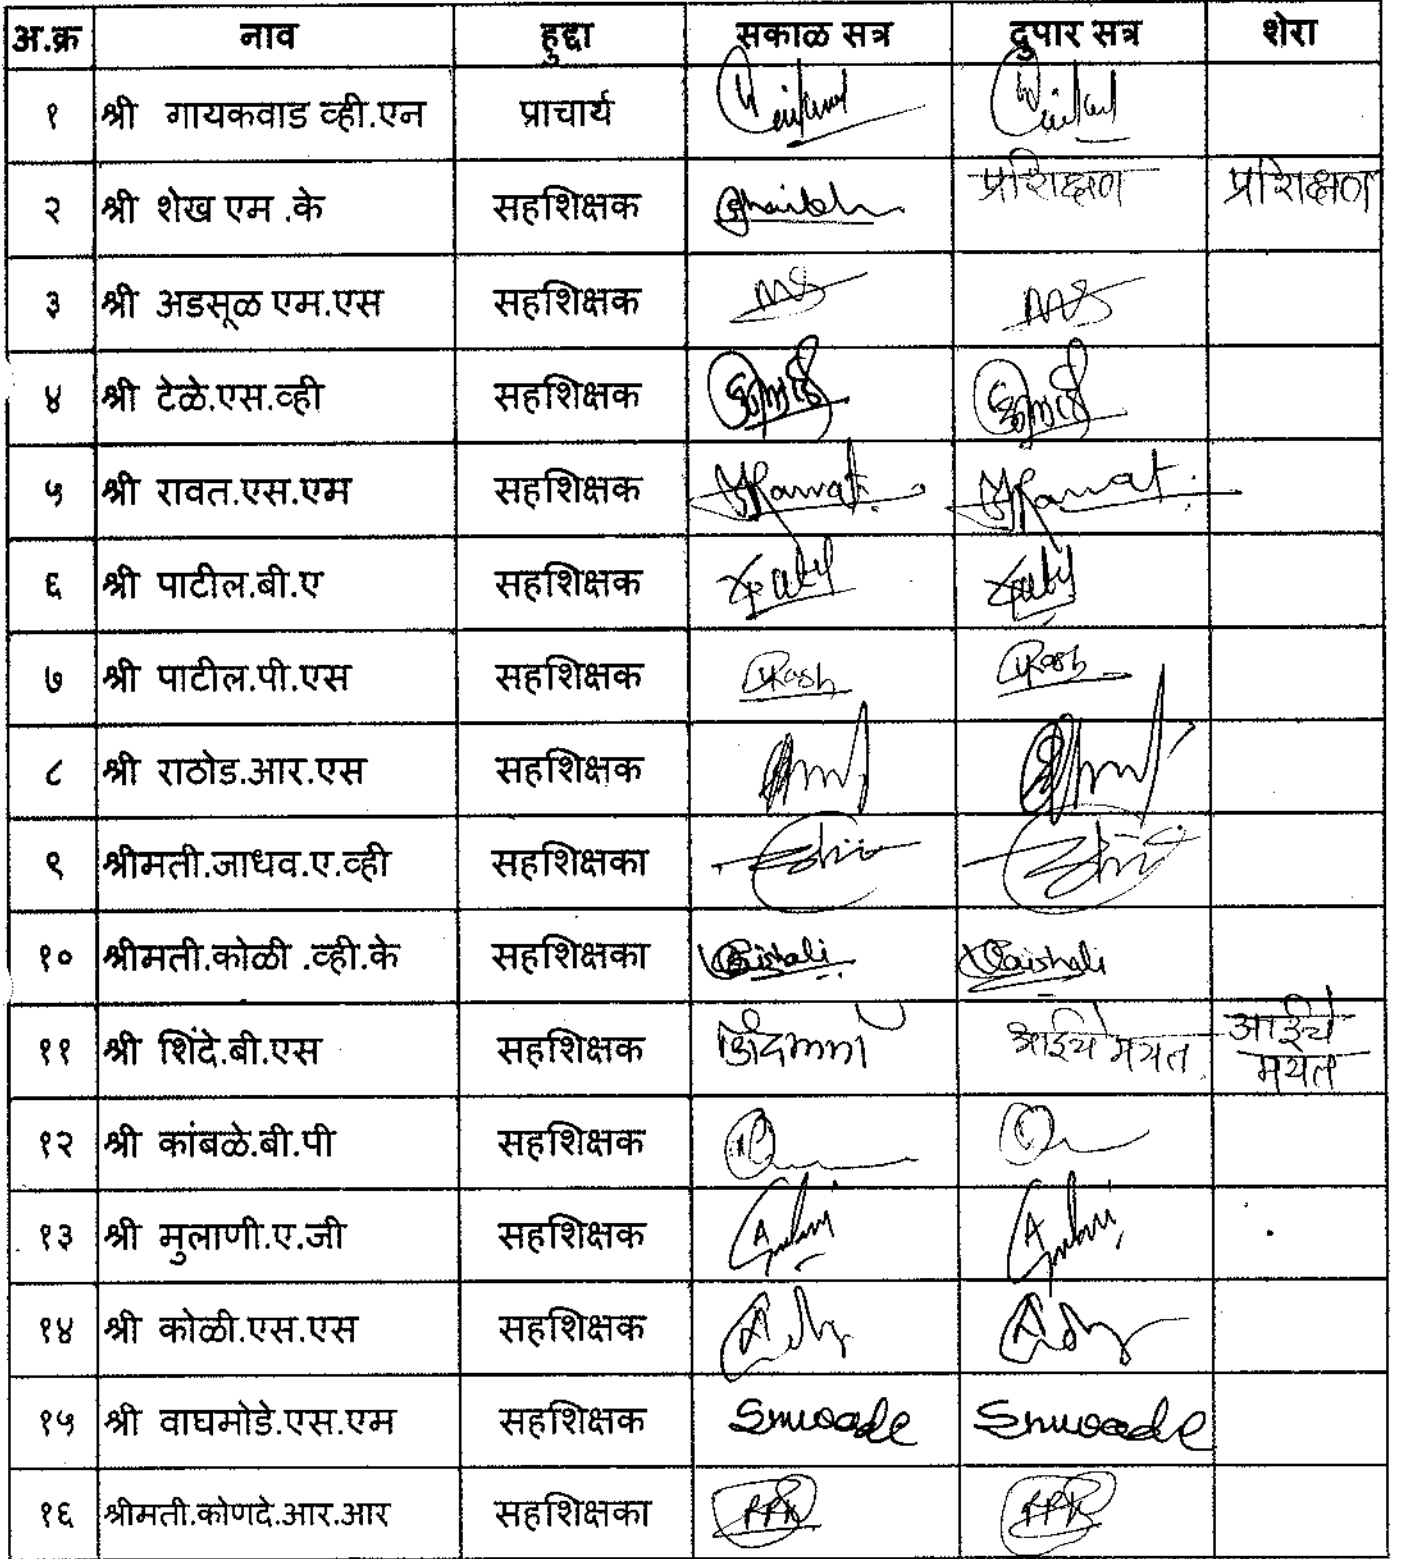 अ.क्र नाव हुद्दा सकाळ सत्र दुपार सत्र शेरा
१ श्री गायकवाड व्ही.एन प्राचार्य
२ श्री शेख एम .के सहशिक्षक Shaikh प्रशिक्षण प्रशिक्षण
३ श्री अडसूळ एम.एस सहशिक्षक
४ श्री टेळे.एस.व्ही सहशिक्षक
५ श्री रावत.एस.एम सहशिक्षक Rawat Rawat
६ श्री पाटील.बी.ए सहशिक्षक
७ श्री पाटील.पी.एस सहशिक्षक
८ श्री राठोड.आर.एस सहशिक्षक
९ श्रीमती.जाधव.ए.व्ही सहशिक्षका
१० श्रीमती.कोळी .व्ही.के सहशिक्षका Vaishali Vaishali
११ श्री शिंदे.बी.एस सहशिक्षक
१२ श्री कांबळे.बी.पी सहशिक्षक
१३ श्री मुलाणी.ए.जी सहशिक्षक
१४ श्री कोळी.एस.एस सहशिक्षक
१५ श्री वाघमोडे.एस.एम सहशिक्षक Smwade Smwade
१६ श्रीमती.कोणदे.आर.आर सहशिक्षका